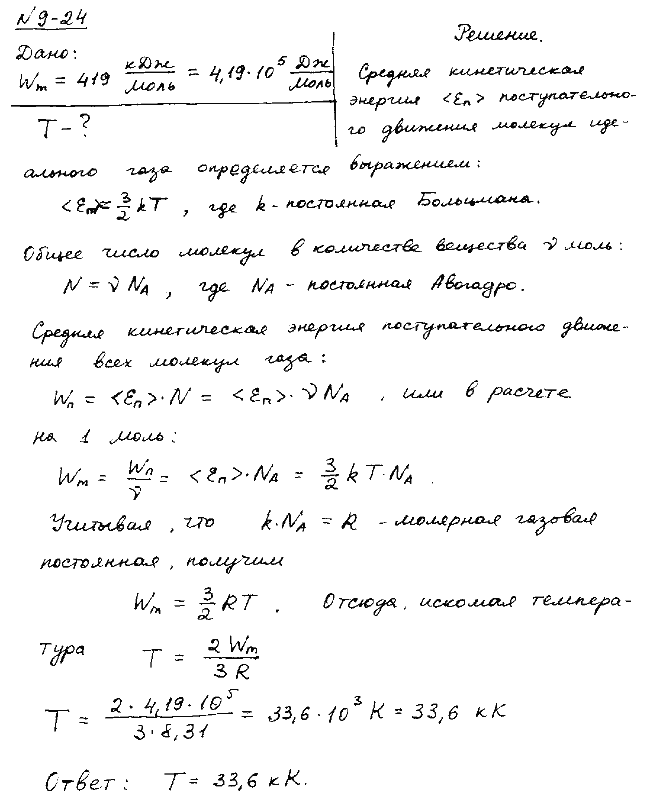 №9-24
Дано:
Wm = 419 кДж/моль = 4,19·10⁵ Дж/моль
T - ?
Решение.
Средняя кинетическая
энергия <εп> поступательно-
го движения молекул иде-
ального газа определяется выражением:
<εп> = 3/2 kT , где k - постоянная Больцмана.
Общее число молекул в количестве вещества ν моль:
N = ν NA , где NA - постоянная Авогадро.
Средняя кинетическая энергия поступательного движе-
ния всех молекул газа:
Wп = <εп>·N = <εп>·ν NA , или в расчете
на 1 моль:
Wm = Wп/ν = <εп>·NA = 3/2 k T·NA .
Учитывая, что k·NA = R - молярная газовая
постоянная, получим
Wm = 3/2 RT . Отсюда, искомая темпера-
тура T = 2 Wm / 3 R
T = 2·4,19·10⁵ / 3·8,31 = 33,6·10³ К = 33,6 кК
Ответ: T = 33,6 кК.